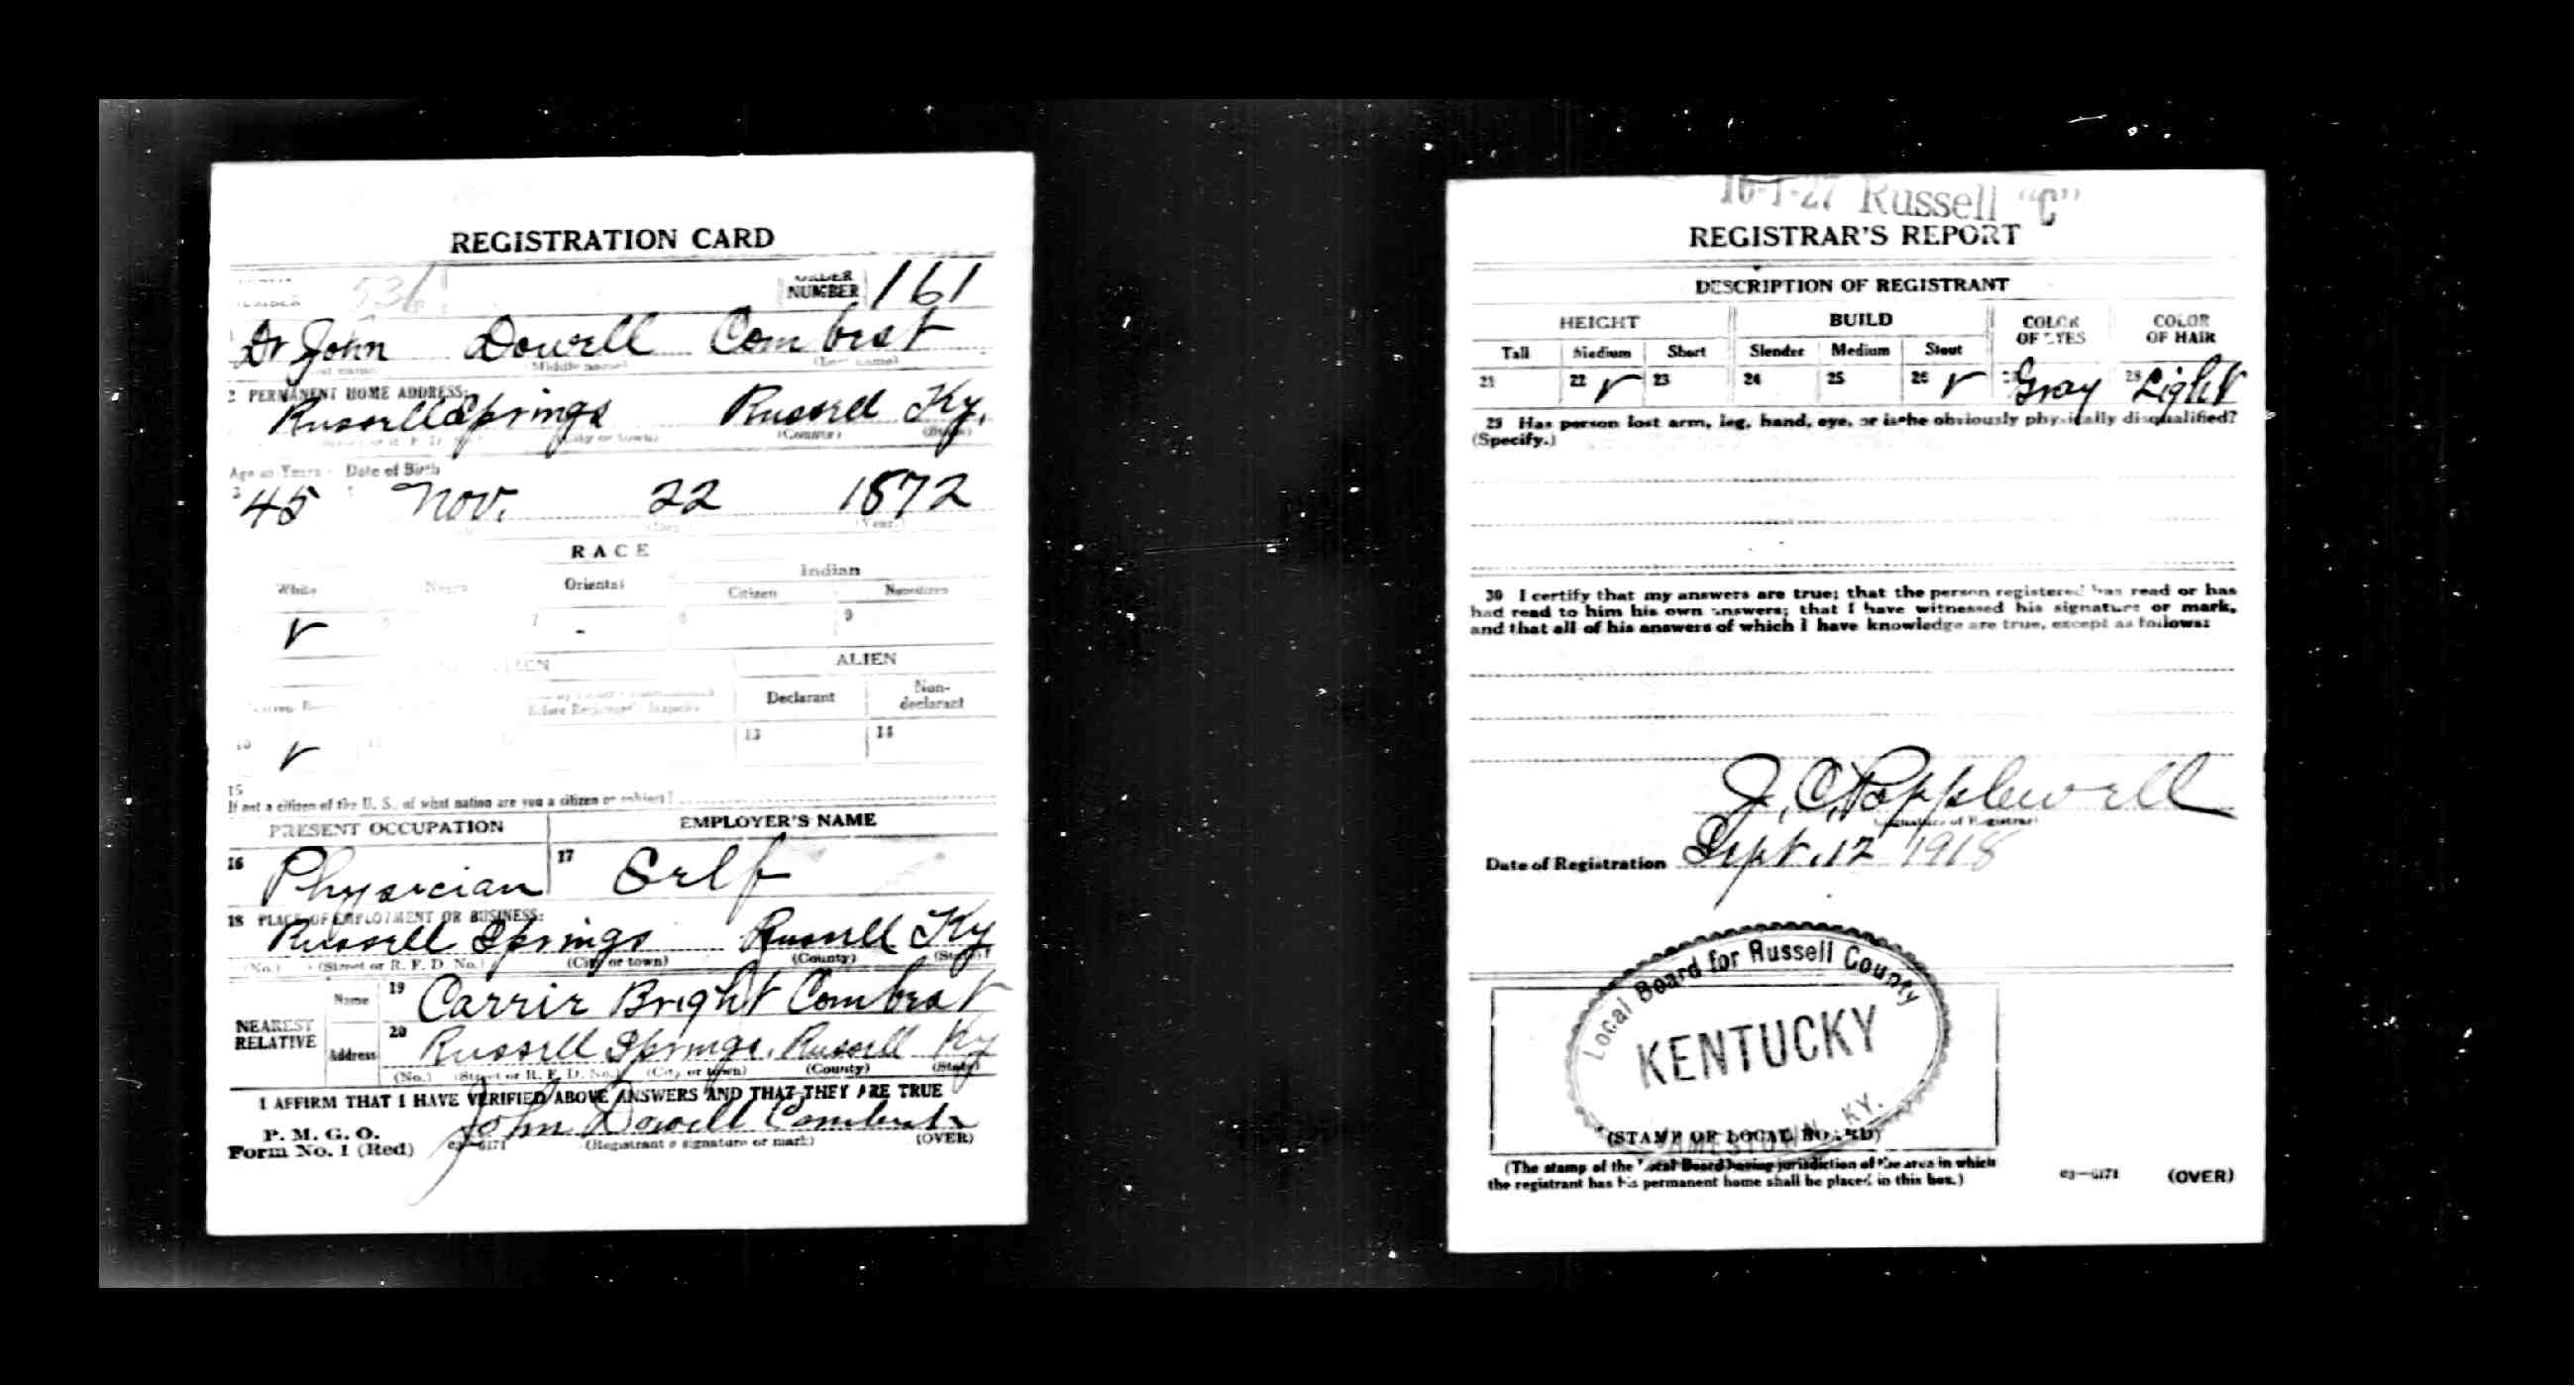 REGISTRATION CARD
NUMBER 536 ORDER NUMBER 161
Dr John Dowell Combest
(Middle name) (Last name)
2 PERMANENT HOME ADDRESS:
Russell Springs Russell Ky.
(City or town) (County) (State)
Age in Years Date of Birth
3 45 Nov. 22 1872
(Day) (Year)
RACE
White Negro Oriental Indian
Citizen Noncitizen
✓ 7 8 9
ALIEN
Declarant Non-declarant
10 ✓ 11 13 14
15
If not a citizen of the U. S., of what nation are you a citizen or subject?
PRESENT OCCUPATION EMPLOYER'S NAME
16 Physician 17 Self
18 PLACE OF EMPLOYMENT OR BUSINESS:
Russell Springs Russell Ky
(No.) (Street or R. F. D. No.) (City or town) (County) (State)
NEAREST RELATIVE
Name 19 Carrie Bright Combest
Address 20 Russell Springs, Russell Ky
(No.) (Street or R. F. D. No.) (City or town) (County) (State)
I AFFIRM THAT I HAVE VERIFIED ABOVE ANSWERS AND THAT THEY ARE TRUE
P. M. G. O.
Form No. 1 (Red) John Dowell Combest
03—6171 (Registrant's signature or mark) (OVER)
16-1-27 Russell "C"
REGISTRAR'S REPORT
DESCRIPTION OF REGISTRANT
HEIGHT BUILD COLOR OF EYES COLOR OF HAIR
Tall Medium Short Slender Medium Stout
21 22 ✓ 23 24 25 26 ✓ Gray 28 Light
29 Has person lost arm, leg, hand, eye, or is he obviously physically disqualified?
(Specify.)
30 I certify that my answers are true; that the person registered has read or has
had read to him his own answers; that I have witnessed his signature or mark,
and that all of his answers of which I have knowledge are true, except as follows:
J. C. Popplewell
(Signature of Registrar)
Date of Registration Sept. 12 1918
Local Board for Russell County
KENTUCKY
JAMESTOWN, KY.
(STAMP OF LOCAL BOARD)
(The stamp of the Local Board having jurisdiction of the area in which
the registrant has his permanent home shall be placed in this box.)
03—6171 (OVER)